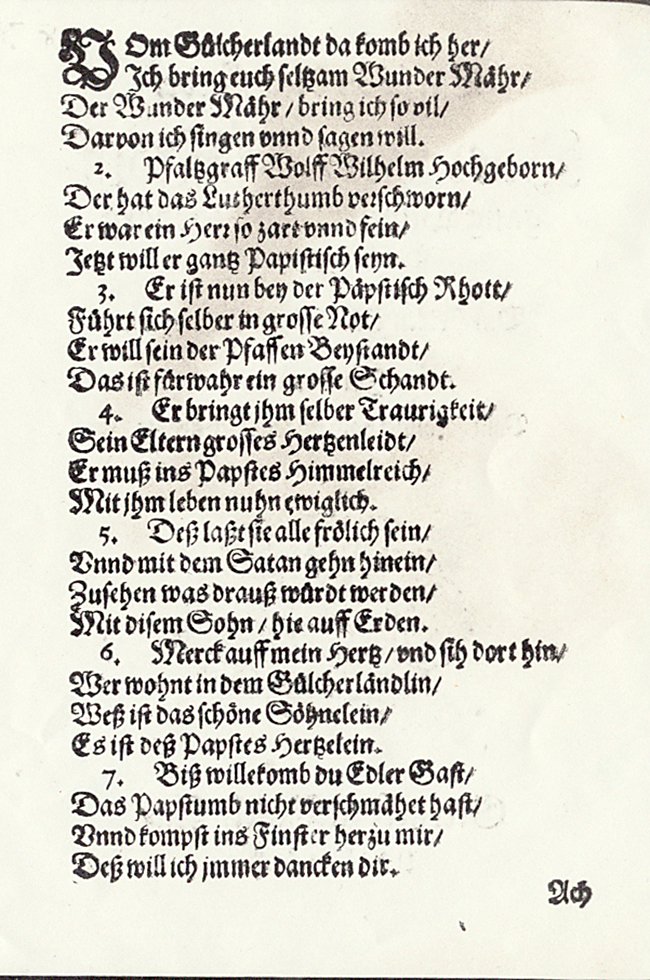 VOm Gülcherlandt da komb ich her/
Ich bring euch seltzam Wunder Mähr/
Der Wunder Mähr / bring ich so vil/
Darvon ich singen vnnd sagen will.
2. Pfaltzgraff Wolff Wilhelm Hochgeborn/
Der hat das Lutherthumb verschworn/
Er war ein Herr so zart vnnd fein/
Jetzt will er gantz Papistisch seyn.
3. Er ist nun bey der Päpstisch Rhott/
Führt sich selber in grosse Not/
Er will sein der Pfaffen Beystandt/
Das ist fürwahr ein grosse Schandt.
4. Er bringt jhm selber Traurigkeit/
Sein Eltern grosses Hertzenleidt/
Er muß ins Papstes Himmelreich/
Mit jhm leben nuhn ewiglich.
5. Deß laßt sie alle frölich sein/
Vnnd mit dem Satan gehn hinein/
Zusehen was drauß würdt werden/
Mit disem Sohn / hie auff Erden.
6. Merck auff mein Hertz / vnd sih dort hin/
Wer wohnt in dem Gülcherländlin/
Weß ist das schöne Söhnelein/
Es ist deß Papstes Hertzelein.
7. Biß willekomb du Edler Gast/
Das Papstumb nicht verschmähet hast/
Vnnd kompst ins Finster her zu mir/
Deß will ich jmmer dancken dir.
Ach